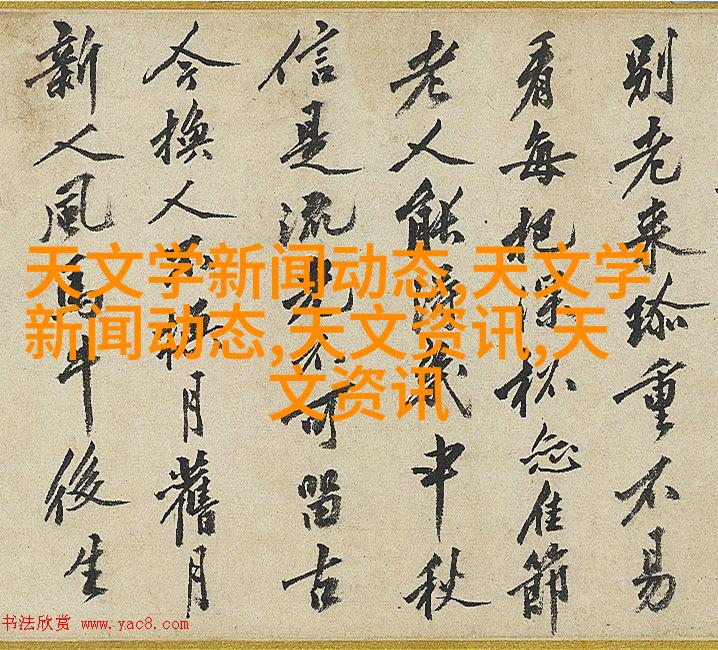 别老来珍重不易
看每把深杯佳節
老人能得幾中秋
信是流光不可留古
今換人不換月舊月
新人風馬牛後生
天文学新闻动态,天文学
新闻动态,天文资讯,天
文资讯
书法欣赏 www.yac8.com